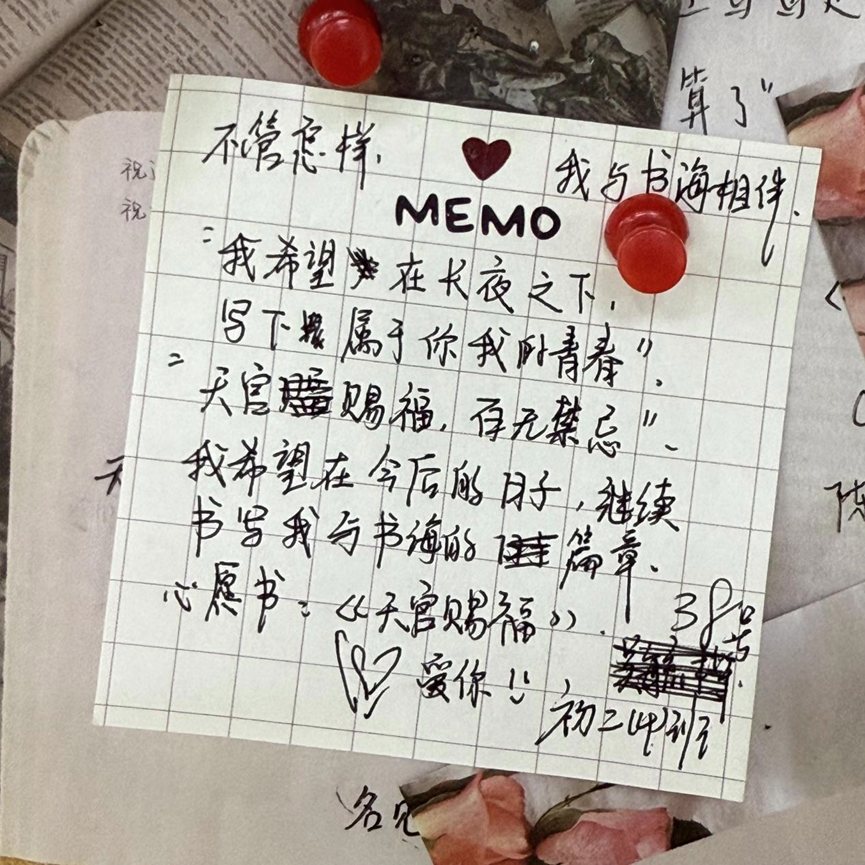 不管怎样,
我与书海相伴.
MEMO
"我希望在长夜之下,
写下属于你我的青春".
"天官赐福,百无禁忌".
我希望在今后的日子,继续
书写我与书海的篇章.
心愿书:《天官赐福》.
38号
爱你!!,
初二(4)班
算了"
祝
祝
天
陈
名见